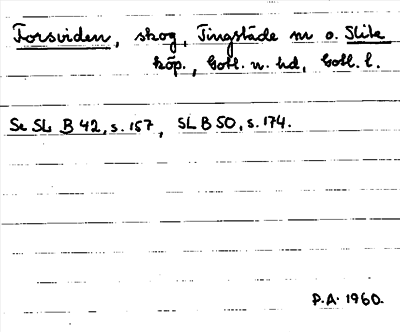 Forsviden, skog, Tingstäde sn o. Slite
köp., Gotl. n. hd, Gotl. l.
Se SL B 42, s. 157, SL B 50, s. 174.
P.A. 1960.